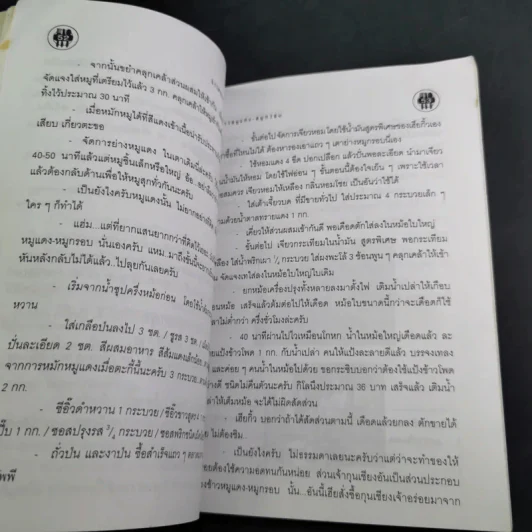 - จากนั้นขยำคลุกเคล้าส่วนผสมให้เข้ากัน
จัดแจงใส่หมูที่เตรียมไว้แล้ว 3 กก. คลุกเคล้าให้
ทิ้งไว้ประมาณ 30 นาที
- เมื่อหมักหมูได้ที่สีแดงเข้าเนื้อน่ารับประทาน
เสียบ เกี่ยวตะขอ
- จัดการย่างหมูแดง ในเตาเดิมนี่
40-50 นาทีแล้วแต่หมูชิ้นเล็กหรือใหญ่ อ้อ
แล้วต้องกลับด้านเพื่อให้หมูสุกทั่วกันนะครับ
- เป็นยังไงครับหมูแดงนั้น ไม่ยากอย่าง
ใคร ๆ ก็ทำได้
- แฮ่ม...แต่ที่ยากแสนยากกว่าที่คิดไว้
หมูแดง-หมูกรอบ นั่นเองครับ แหม มาถึงขั้นนี้
หันหลังกลับไม่ได้แล้ว...ไปลุยกันเลยครับ
- เริ่มจากน้ำซุปครึ่งหม้อก่อน โดยใช้
หวาน
- ใส่เกลือป่นลงไป 3 ชต. / ชูรส 3 ชต /
ปั่นละเอียด 2 ชต. สีผสมอาหาร สีส้มแดงเล็กน้อย
จากการหมักหมูแดงเมื่อตะกี้นี้นะครับ 3 กระบวย
2 กก.
- ซีอิ๊วดำหวาน 1 กระบวย / ซีอิ๊วขาวสูตร
ปี๊บ 1 กก. / ซอสปรุงรส ¹/₂ กระบวย / ซอสพริกชนิด
- ถั่วป่น และงาป่น ซื้อสำเร็จแถว ๆ
- ขั้นต่อไปจัดการเจียวหอม โดยใช้น้ำมันสูตรพิเศษของเฮียกิ๊วเอง
ซื้อที่ไหนไม่ได้ ต้องหารองเอาแถว ๆ เตาย่างหมูกรอบนี่เอง
- ใช้หอมแดง 4 ขีด ปอกเปลือก แล้วปั่นพอละเอียด นำมาเจียว
น้ำมันให้หอม โดยใช้ไฟอ่อน ๆ ขั้นตอนนี้ต้องใจเย็น ๆ เพราะใช้เวลา
พอสมควร เจียวหอมให้เหลือง กลิ่นหอมโชย เป็นอันว่าใช้ได้
- ใส่เต้าเจี้ยวบด ที่มีขายทั่วไป ใส่ประมาณ 4 กระบวยเล็ก ๆ
ตามด้วยน้ำตาลทรายแดง 1 กก.
- เคี่ยวให้ส่วนผสมเข้ากันดี พอเดือดตักใส่ลงในหม้อใบใหญ่
- ขั้นต่อไป เจียวกระเทียมในน้ำมัน สูตรพิเศษ พอกระเทียม
เหลือง ใส่น้ำพริกเผา ¹/₂ กระบวย / ใส่ผงพะโล้ 3 ช้อนพูน ๆ คลุกเคล้าให้เข้า
กัน จัดแจงเทใส่ลงในหม้อใหญ่ใบเดิม
- ยกหม้อเครื่องปรุงทั้งหลายลงมาตั้งไฟ เติมน้ำเปล่าให้เกือบ
ค่อนหม้อ เสร็จแล้วต้มต่อไปให้เดือด หม้อใบขนาดนี้กว่าจะเดือดก็ใช้
เวลาไม่ต่ำกว่า ครึ่งชั่วโมงล่ะครับ
- 40 นาทีผ่านไปไวเหมือนโกหก น้ำในหม้อใหญ่เดือดแล้ว ละ
ลายแป้งข้าวโพด 1 กก. กับน้ำเปล่า คนให้แป้งละลายดีแล้ว บรรจงเทลง
และค่อย ๆ คนน้ำในหม้อไปด้วย ขอกระซิบบอกว่าต้องใช้แป้งข้าวโพด
อย่างดี ชนิดไม่คืนตัวนะครับ กิโลนึงประมาณ 36 บาท เสร็จแล้ว เติมน้ำ
เปล่าให้เต้มหม้อ จะได้ไม่ผิดสัดส่วน
- เฮียกิ๊ว บอกว่าถ้าได้สัดส่วนตามนี้ เดือดแล้วยกลง ตักขายได้
ไม่ต้องชิม
- เป็นยังไงครับ ไม่ธรรมดาเลยนะครับว่าแต่ว่าจะทำของให้
อร่อยต้องใช้ความอดทนกันหน่อย ส่วนเจ้ากุนเชียงอันเป็นส่วนประกอบ
ของข้าวหมูแดง-หมูกรอบ นั้น...อันนี้เฮียสั่งซื้อกุนเชียงเจ้าอร่อยมาจาก